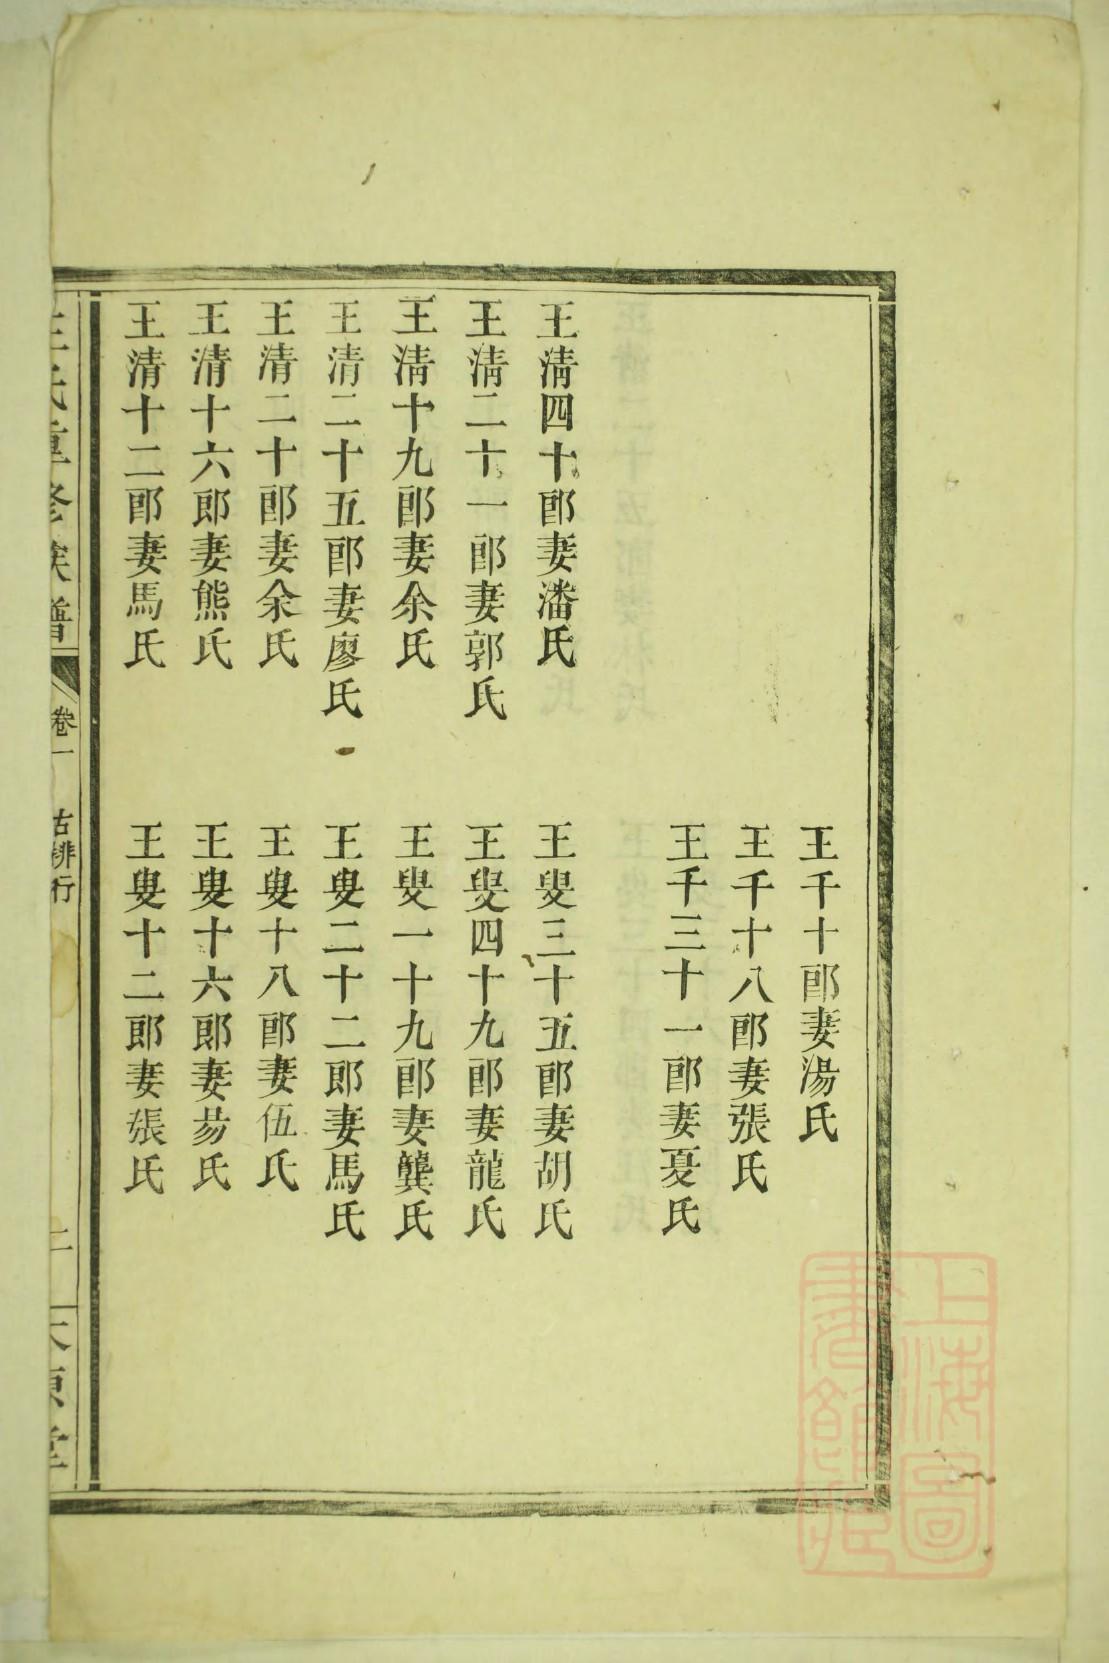 王千十郎妻湯氏
王千十八郎妻張氏
王千三十一郎妻夏氏
王清四十郎妻潘氏
王叟三十五郎妻胡氏
王清二十一郎妻郭氏
王叟四十九郎妻龍氏
王清十九郎妻余氏
王叟一十九郎妻龔氏
王清二十五郎妻廖氏
王叟二十二郎妻馬氏
王清二十郎妻余氏
王叟十八郎妻伍氏
王清十六郎妻熊氏
王叟十六郎妻易氏
王清十二郎妻馬氏
王叟十二郎妻張氏
王氏重修族譜
卷一
古排行
二
太原堂
上海圖
書館藏